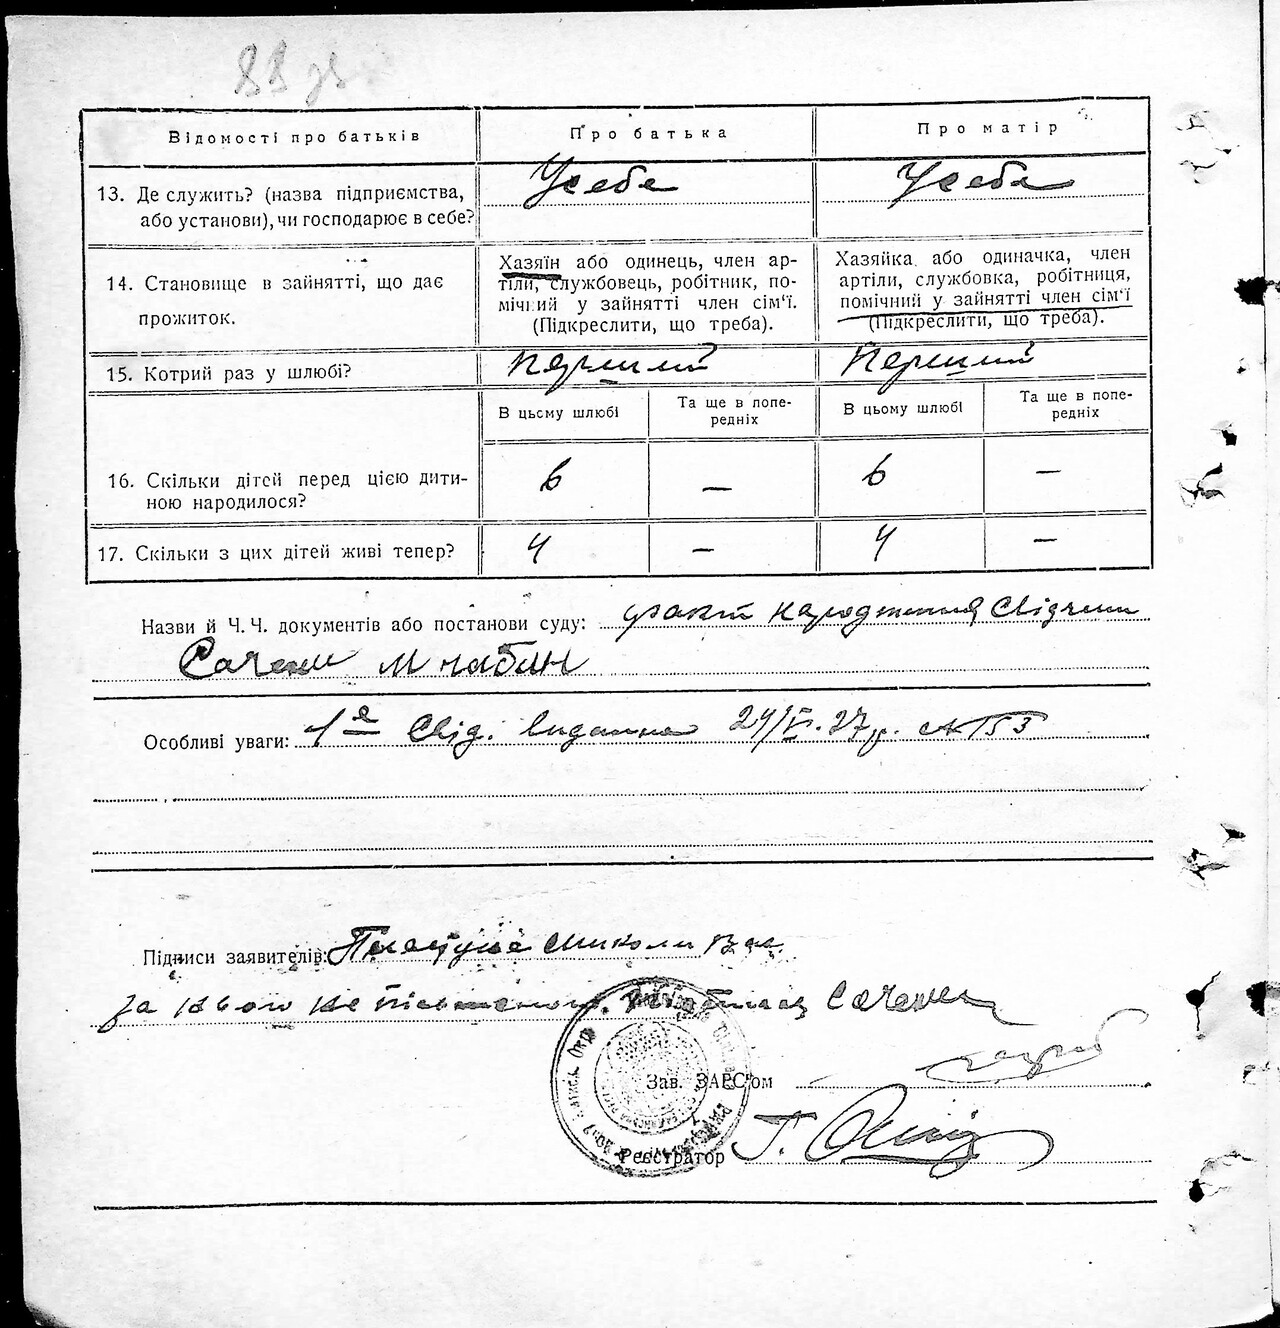 88 зв
Відомості про батьків
Про батька
Про матір
13. Де служить? (назва підприємства, або установи), чи господарює в себе?
У себе
У себе
14. Становище в зайнятті, що дає прожиток.
Хазяїн або одинець, член ар-
тіли, службовець, робітник, по-
мічний у зайнятті член сім'ї.
(Підкреслити, що треба).
Хазяйка або одиначка, член
артіли, службовка, робітниця,
помічний у зайнятті член сім'ї
(Підкреслити, що треба).
15. Котрий раз у шлюбі?
Перший
Перший
В цьому шлюбі
Та ще в попе-
редніх
В цьому шлюбі
Та ще в попе-
редніх
16. Скільки дітей перед цією дити-
ною народилося?
6
—
6
—
17. Скільки з цих дітей живі тепер?
4
—
4
—
Назви й Ч. Ч. документів або постанови суду: факт народження
Особливі уваги: Свід. видання 24/ 27р.
Підписи заявителів: Миколи
за його неписьменого
Зав. ЗАГС'ом
Реєстратор Г.